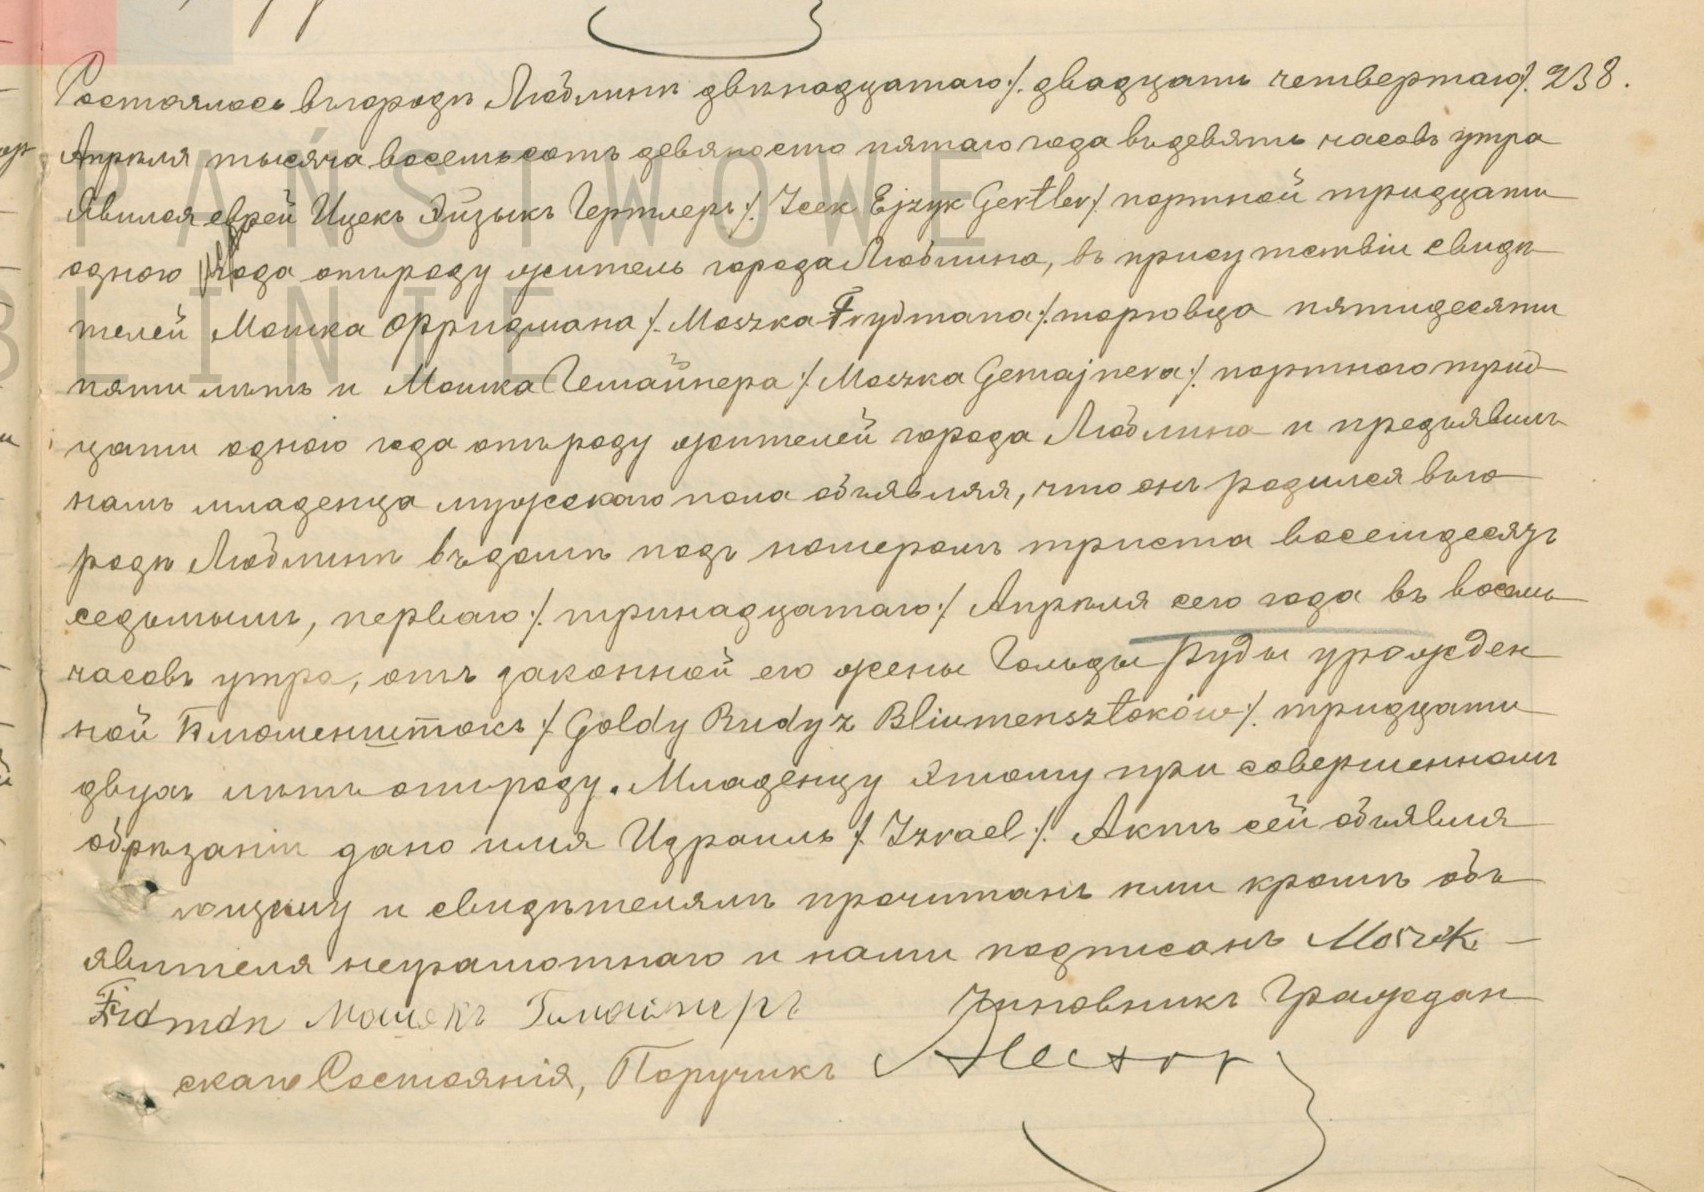 Состоялось въ городѣ Люблинѣ двѣнадцатаго /. двадцать четвертаго /. 238.
Апрѣля тысяча восемьсотъ девяносто пятаго года въ девять часовъ утра
Явился еврей Ицекъ Эйзыкъ Гертлеръ /. Icek Ejzyk Gertler /. портной тридцати
одного года отъ роду житель города Люблина, въ присутствіи свидѣ
телей Мошка Фридмана /. Moszka Frydmana /. торговца пятидесяти
пяти лѣтъ и Мошка Гемайнера /. Moszka Gemajnera /. портного трид
цати одного года отъ роду жителей города Люблина и предъявилъ
намъ младенца мужескаго пола объявляя, что онъ родился въ го
родѣ Люблинѣ въ домѣ подъ номеромъ триста восемдесятъ
седьмымъ, перваго /. тринадцатаго /. Апрѣля сего года въ восемь
часовъ утра, отъ законной его жены Гольды Руды урожден
ной Блюменштокъ /. Goldy Rudy z Bliumensztoków /. тридцати
двухъ лѣтъ отъ роду. Младенцу этому при совершенномъ
обрѣзаніи дано имя Израиль /. Izrael /. Актъ сей объявля
ющему и свидѣтелямъ прочитанъ ими кромѣ объ
явителя неграмотнаго и нами подписанъ Moszek
Fridman Мошекъ Гимайнеръ Чиновникъ Граждан
скаго Состоянія, Поручикъ
PAŃSTWOWE
BLINIE